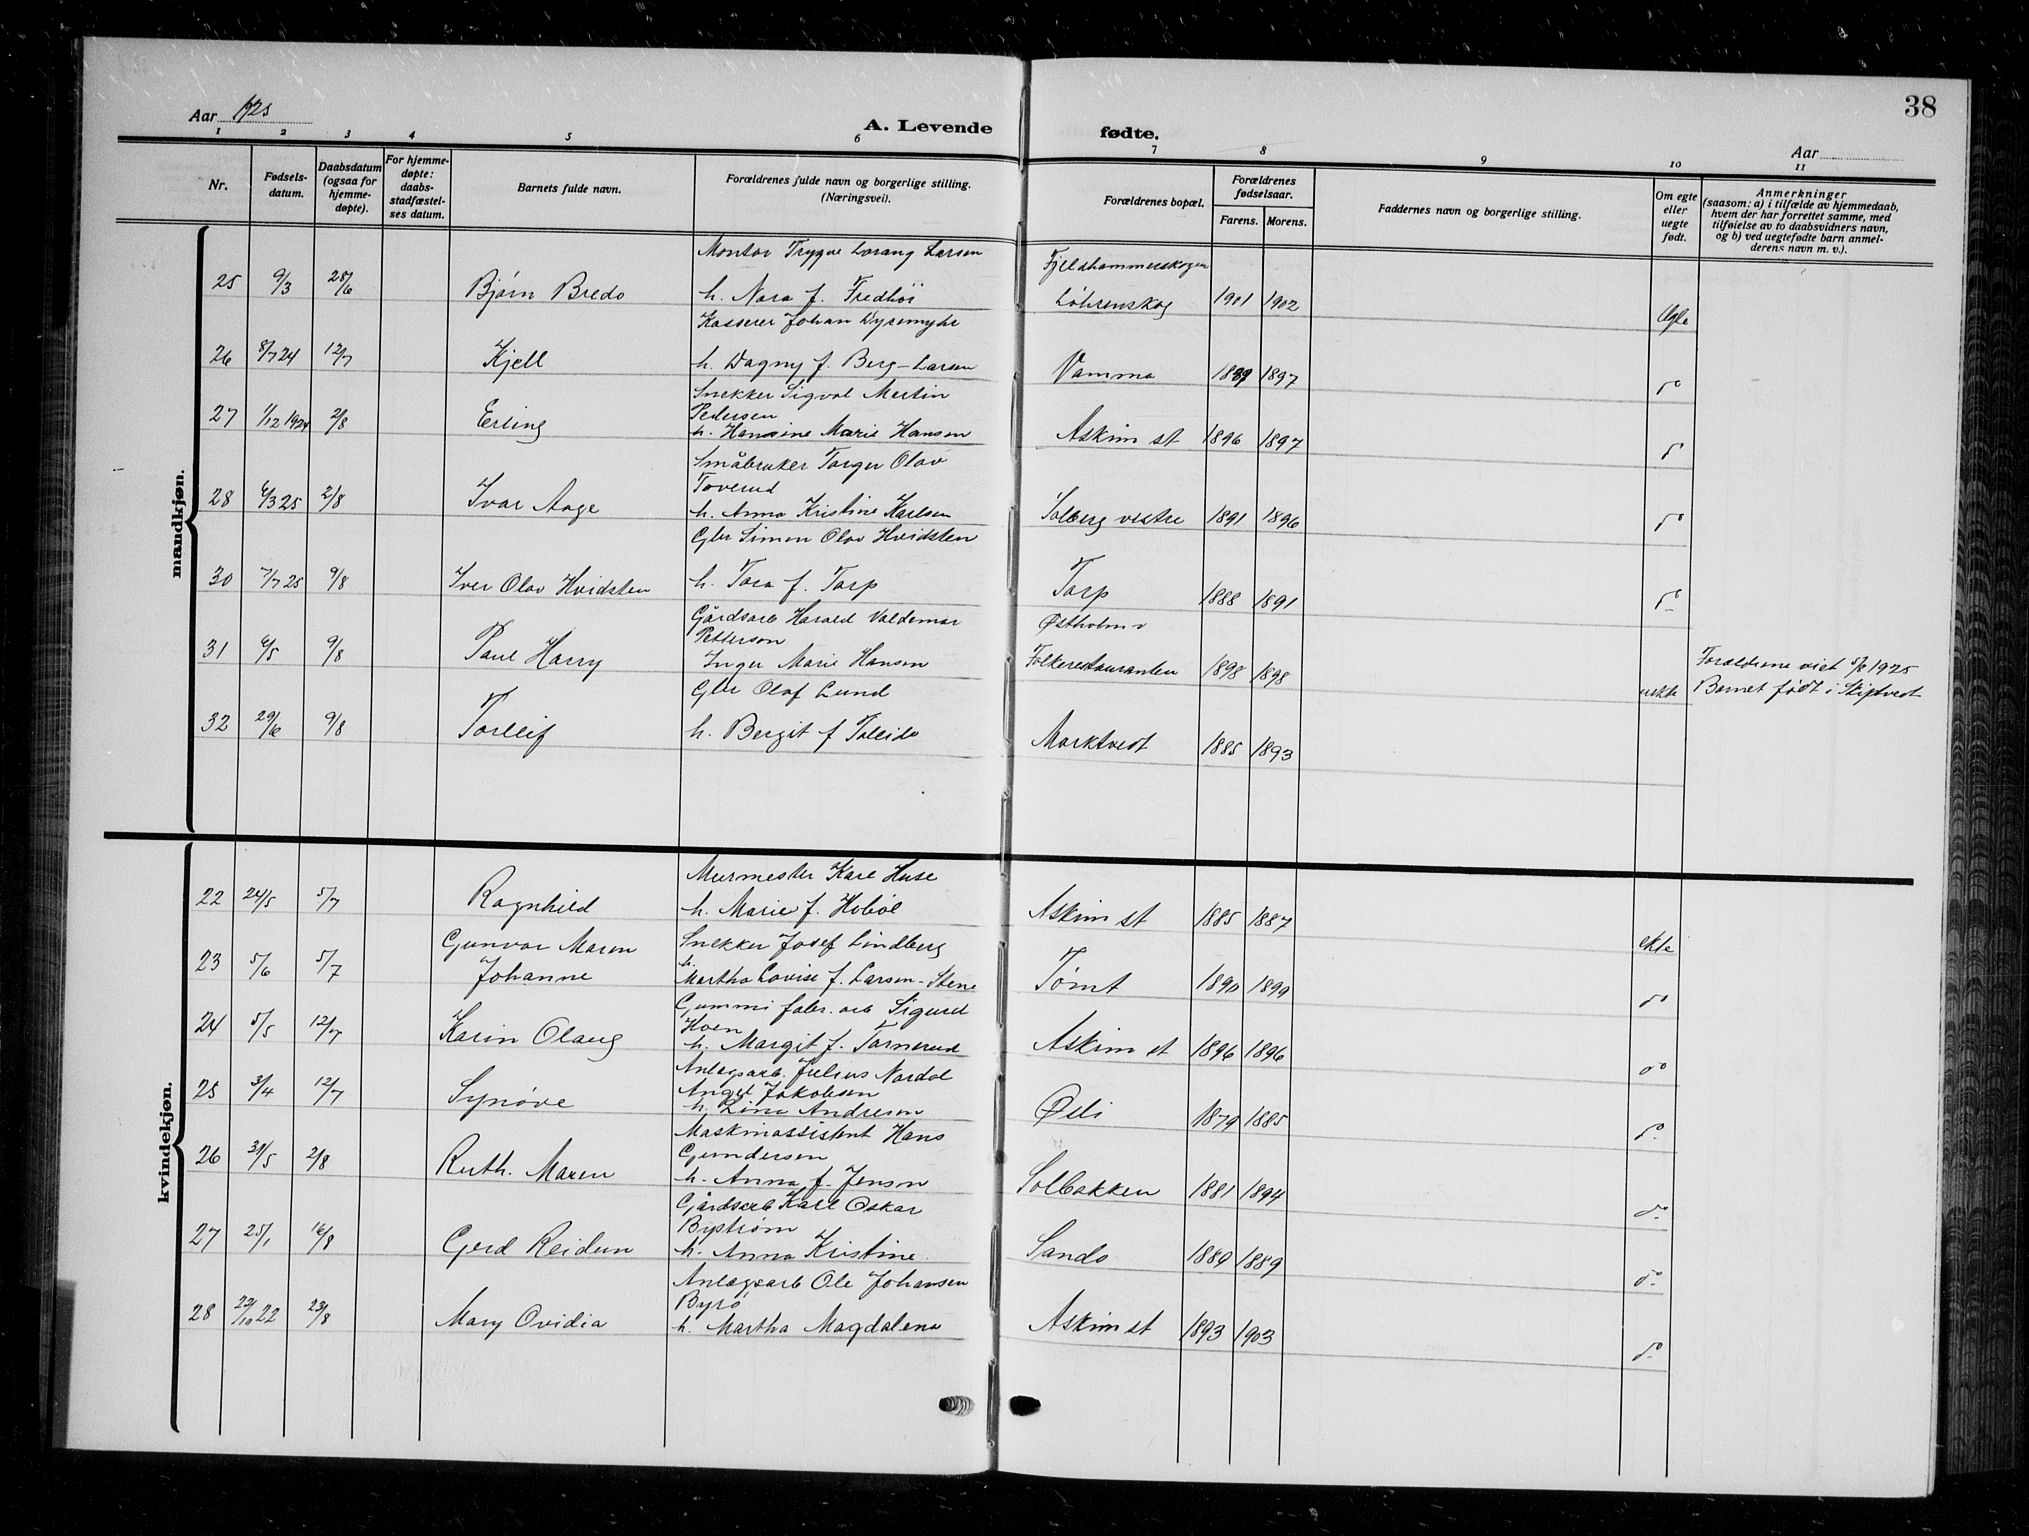 38
Aar 1925
A. Levende fødte.
Aar
1 2 3 4 5 6 7 8 9 10 11
Nr.
Fødsels-
datum.
Daabsdatum
(ogsaa for
hjemme-
døpte).
For hjemme-
døpte:
daabs-
stadfæstel-
ses datum.
Barnets fulde navn.
Forældrenes fulde navn og borgerlige stilling.
(Næringsvei).
Forældrenes bopæl.
Forældrenes
fødselsaar.
Farens. Morens.
Faddernes navn og borgerlige stilling.
Om egte
eller
uegte
født.
Anmerkninger
(saasom: a) i tilfælde av hjemmedaab,
hvem der har forrettet samme, med
tilføielse av to daabsvidners navn,
og b) ved uegtefødte barn anmel-
derens navn m. v.).
mandkjøn.
Montør Trygve Lorang Larsen
Fjeldhammerskogen
25 9/3 28/6 Bjørn Bredo h. Nora f. Fredhøi Løhrenskog 1901 1902 Egte
Kasserer Johan Dyremyhr
26 8/7 24 12/7 Kjell h. Dagny f. Berg-Larsen Vamma 1889 1897 do
Snekker Sigval Martin
Pedersen
27 1/12 1924 2/8 Erling h. Hansine Marie Hansen Askim st 1896 1897 do
Småbruker Torger Olav
Toverud
28 6/3 25 2/8 Ivar Aage h. Anna Kristine Karlsen Solberg vestre 1891 1896 do
Gbr Simon Olav Hvidsten
30 7/7 25 9/8 Iver Olav Hvidsten h. Tora f. Torp Torp 1888 1891 do
Gårdsarb Harald Valdemar
Petterson
Østholm v
31 6/5 9/8 Paul Harry Inger Marie Hansen Folkerestauranten 1898 1898 uekte
Forældrene viet 5/8 1925
Barnet født i Skiptvedt
Gbr Olaf Lund
32 29/6 9/8 Torleif h. Bergit f Marktvedt 1885 1893
kvindekjøn.
Murmester Karl Huse
22 24/5 5/7 Ragnhild h. Marie f. Hobøl Askim st 1885 1887 ekte
Gunvor Maren Snekker Josef Lindberg
23 5/6 5/7 Johanne h. Martha Lovise f. Larsen-Stene Tømt 1890 1899 do
Gummi fabr. arb Sigurd
Hoen
24 5/5 12/7 Karin Olaug h. Margit f. Tornerud Askim st 1896 1896 do
Anlægsarb. Julius Nordal
Angel Jakobsen
25 3/4 12/7 Synøve h. Lina Andresen Øeli 1879 1885 do
Maskinassistent Hans
Gundersen
26 31/5 2/8 Ruth. Maren h. Anna f. Jenson Solbakken 1881 1894 do
Gårdsarb Karl Oskar
Bystrøm
27 25/1 16/8 Gerd Reidun h. Anna Kristine Sando 1889 1889 do
Anlægsarb Ole Johansen
Byrø
28 22/10 22 23/8 Mary Ovidia h. Martha Magdalena Askim st 1893 1903 do